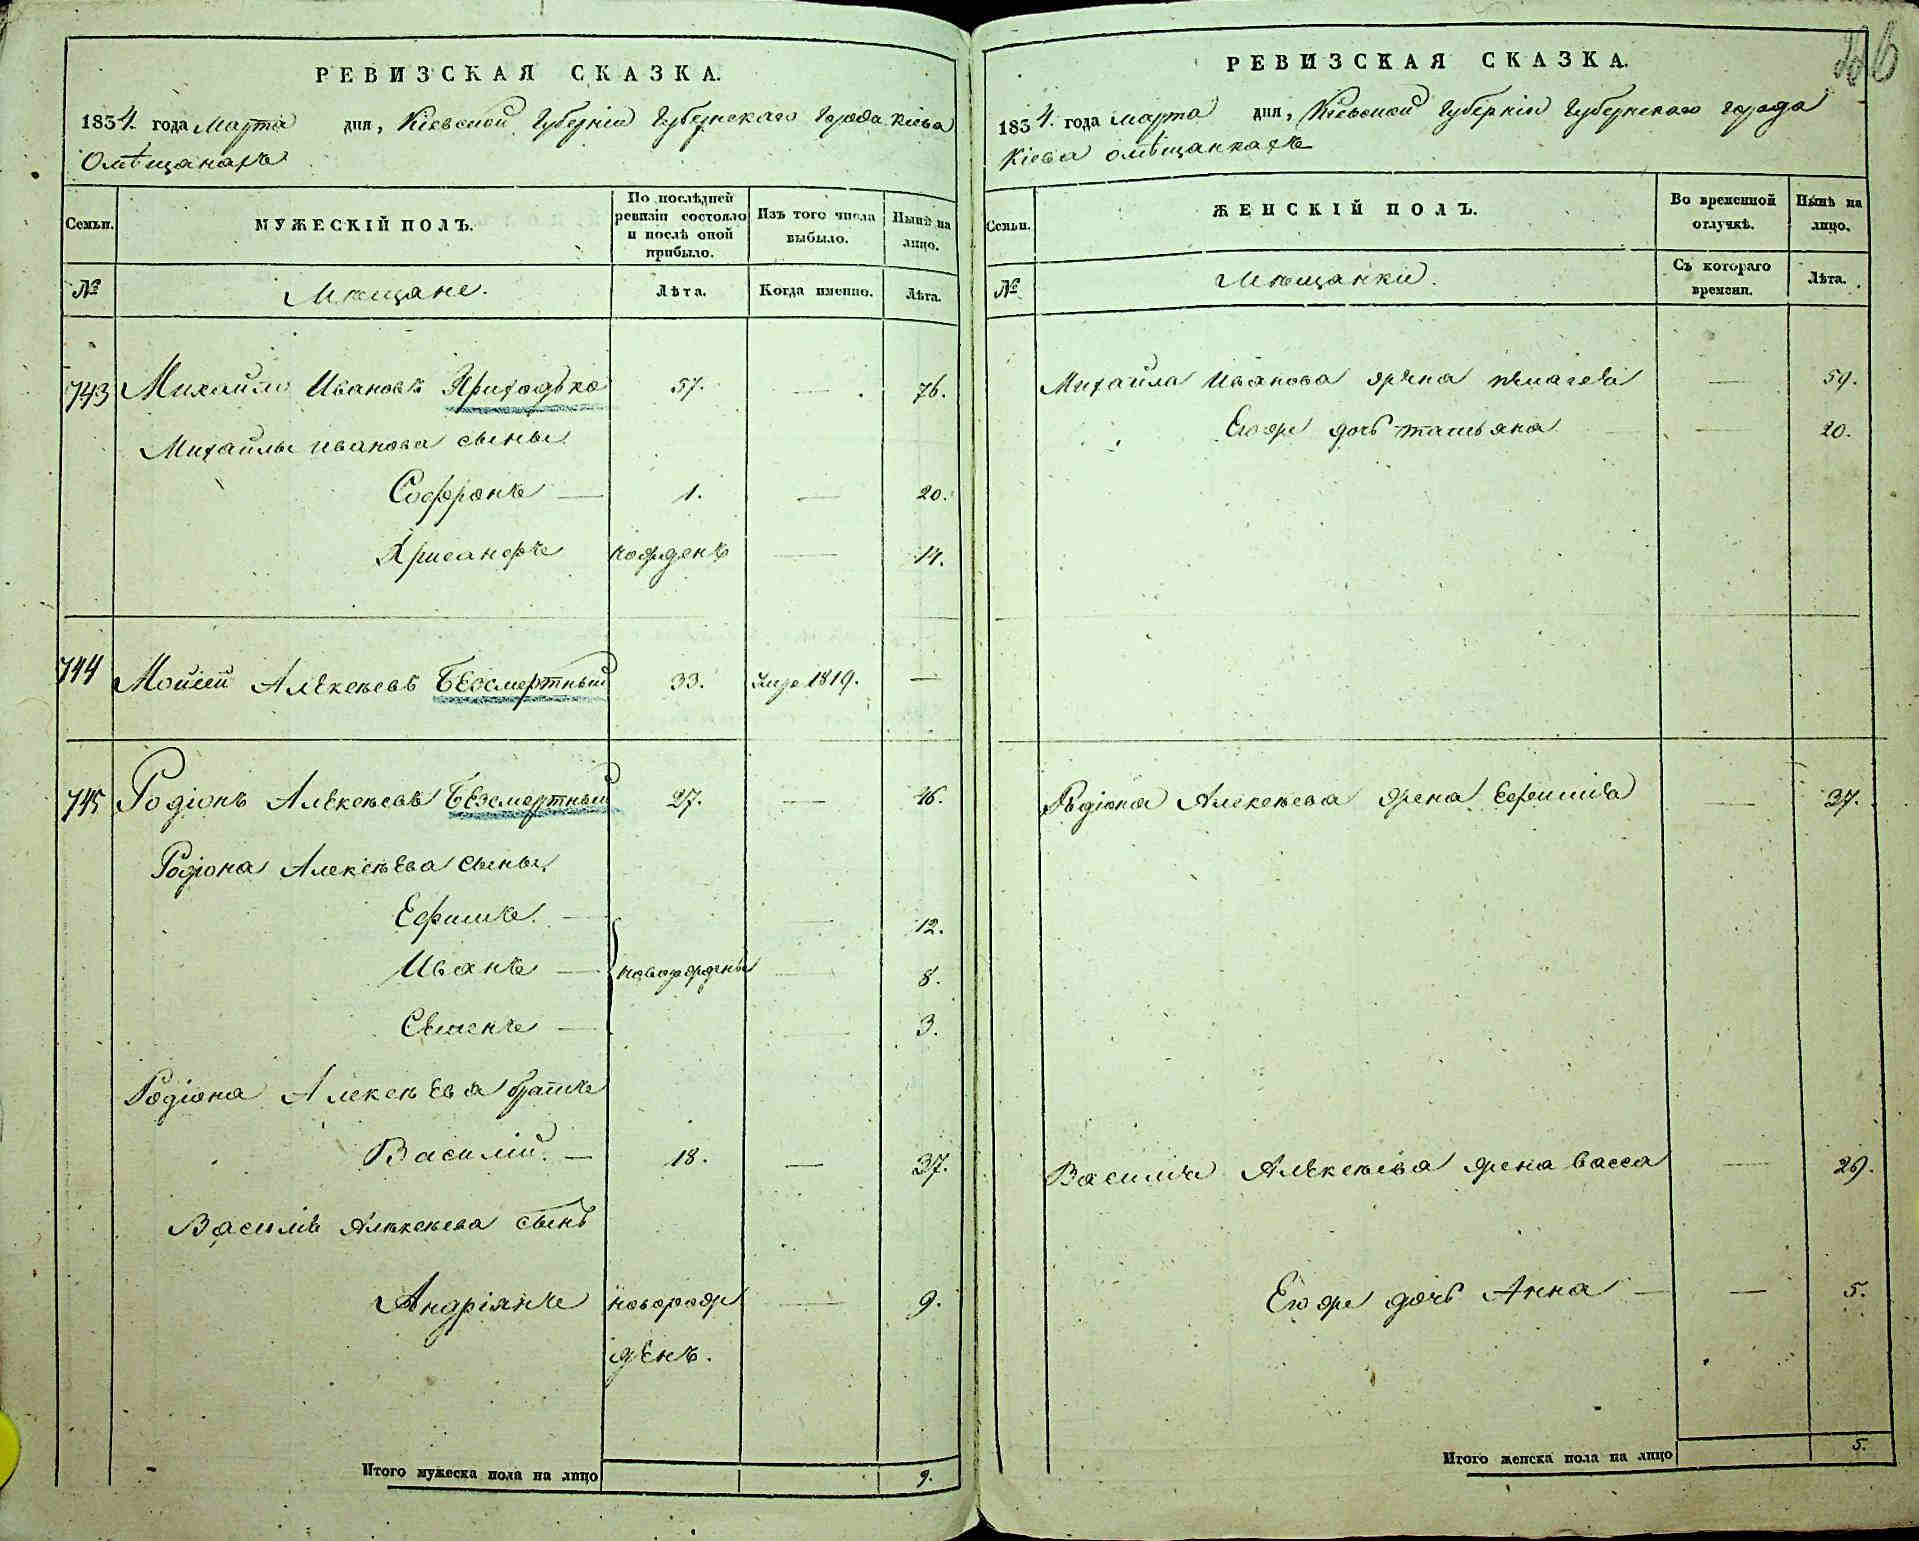 РЕВИЗСКАЯ СКАЗКА.
1834. года Марта дня, Кіевской Губерніи Губернскаго Города Кіева
Омѣщанахъ
Семьи. МУЖЕСКІЙ ПОЛЪ. По послѣдней ревизіи состояло и послѣ оной прибыло. Изъ того числа выбыло. Нынѣ на лицо.
№ Мѣщане. Лѣта. Когда именно. Лѣта.
743 Михайло Ивановъ Приходько 57. — 76.
Михайлы Иванова сыны
Софронъ — 1. — 20.
Хрисанфъ новрденъ — 14.
744 Моисей Алексѣевъ Безсмертный 33. умре 1819. —
745 Родіонъ Алексѣевъ Безсмертный 27. — 46.
Родіона Алексѣева сыны
Ефимъ. — — 12.
Иванъ — новорождены — 8.
Семенъ — — 3.
Родіона Алексѣева братъ
Василій. — 18. — 37.
Василія Алексѣева сынъ
Андріянъ новорож — 9.
денъ.
Итого мужеска пола на лицо 9.
РЕВИЗСКАЯ СКАЗКА.
1834. года Марта дня, Кіевской Губерніи Губернскаго города
Кіева омѣщанкахъ
Семьи. ЖЕНСКІЙ ПОЛЪ. Во временной отлучкѣ. Нынѣ на лицо.
№ Мѣщанки. Съ котораго времени. Лѣта.
Михайла Иванова жена Пелагея — 59.
Егоже дочь татьяна — 20.
Родіона Алексѣева жена Ефимія — 37.
Василія Алексѣева жена Васса — 29.
Егоже дочь Анна — — 5.
Итого женска пола на лицо 5.